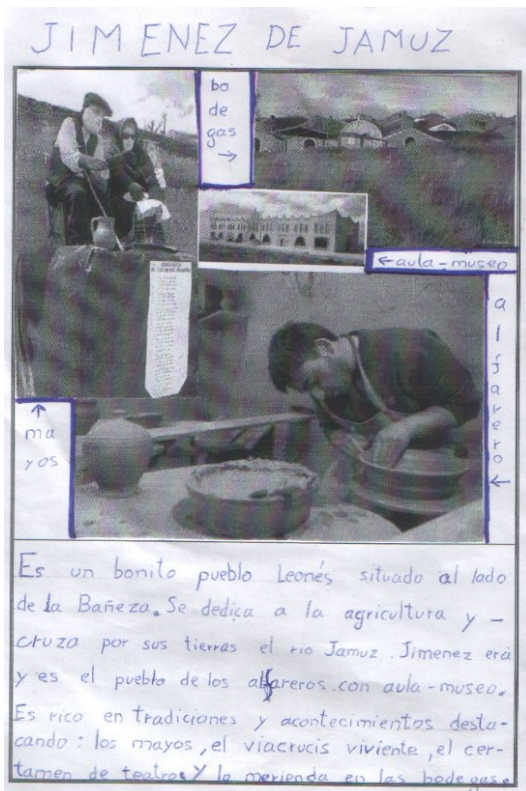 JIMENEZ DE JAMUZ
bo
de
gas
→
←aula-museo
alfarero
←
↑
ma
yos
Es un bonito pueblo Leonés situado al lado
de la Bañeza. Se dedica a la agricultura y -
cruza por sus tierras el rio Jamuz. Jimenez era
y es el pueblo de los alfareros con aula-museo.
Es rico en tradiciones y acontecimientos desta-
cando: los mayos, el viacrucis viviente, el cer-
tamen de teatro y la merienda en las bodegas.